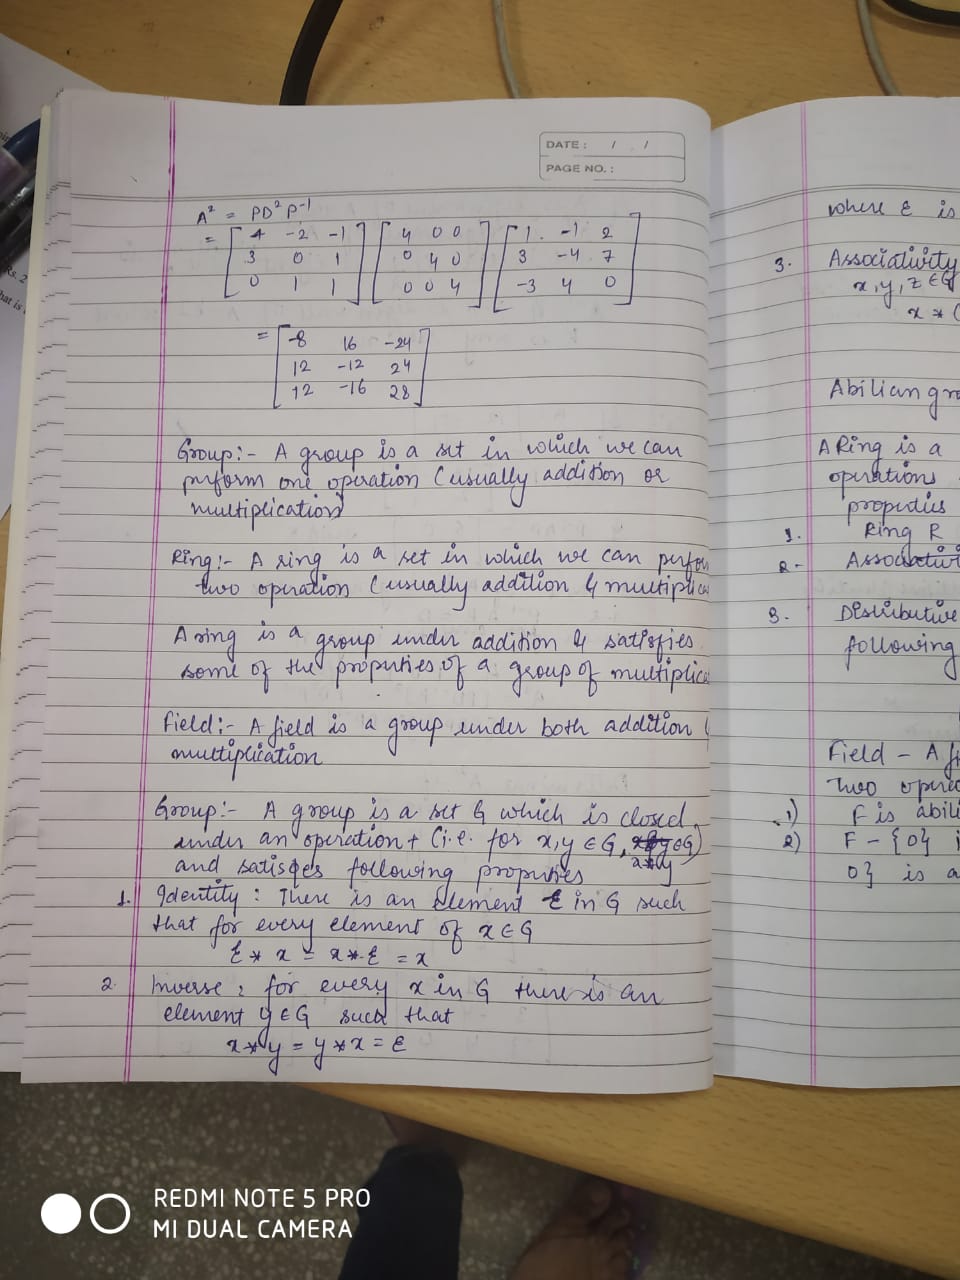 DATE : / /
PAGE NO. :
A² = PD²P⁻¹
= [ 4 -2 -1 ] [ 4 0 0 ] [ 1 -1 2 ]
[ 3 0 1 ] [ 0 4 0 ] [ 3 -4 7 ]
[ 0 1 1 ] [ 0 0 4 ] [ -3 4 0 ]
= [ -8 16 -24 ]
[ 12 -12 24 ]
[ 12 -16 28 ]
Group:- A group is a set in which we can
perform one operation (usually addition or
multiplication)
Ring:- A ring is a set in which we can perfor
two operation (usually addition & multiplica
A ring is a group under addition & satisfies
some of the properties of a group of multiplica
Field:- A field is a group under both addition
multiplication
Group:- A group is a set G which is closed
under an operation + (i.e. for x,y ∈ G, x*y ∈ G)
and satisfies following properties
1. Identity : There is an element ε in G such
that for every element of x ∈ G
ε * x = x * ε = x
2. Inverse : for every x in G there is an
element y ∈ G such that
x * y = y * x = ε
where ε is
3. Associativity
x, y, z ∈ G
x * (
Abilian gro
A Ring is a
operations
properties
1. Ring R
2- Associativi
3. Distributive
following
Field - A fi
two opera
1) F is abili
2) F - {0} i
0} is a
REDMI NOTE 5 PRO
MI DUAL CAMERA